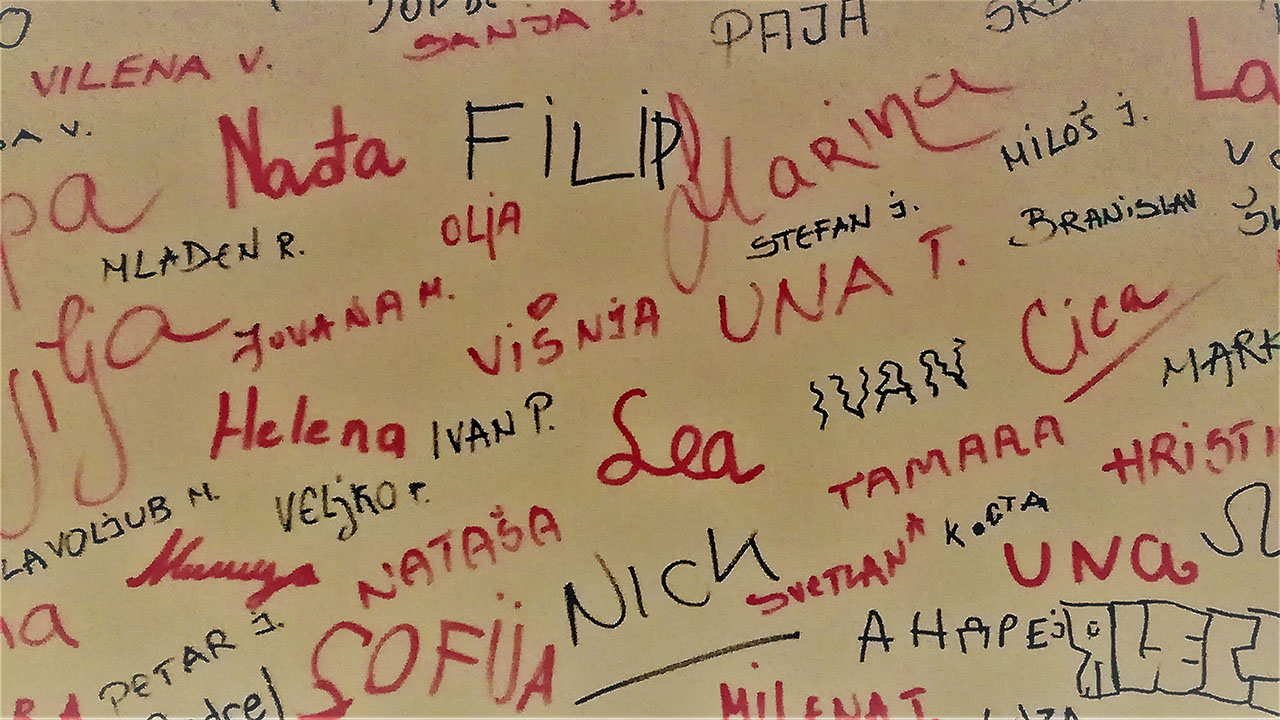 SANJA Đ.
PAJA
VILENA V.
La
Nađa
FiLiP
Marina
MiLOŠ J.
OLJA
MLADEN R.
STEFAN J.
BRANiSLAV
JOVANA M.
ViŠNJA
UNA T.
Cica
MARK
Helena
IVAN P.
Lea
IVAN
TAMARA
HRiSTi
LAVOLJUB M.
VELJKO
NATAŠA
NICK
SVETLANA
KOSTA
UNa
Милица
PETAR J.
SOFIJA
АНДРЕЈ
MiLENA T.